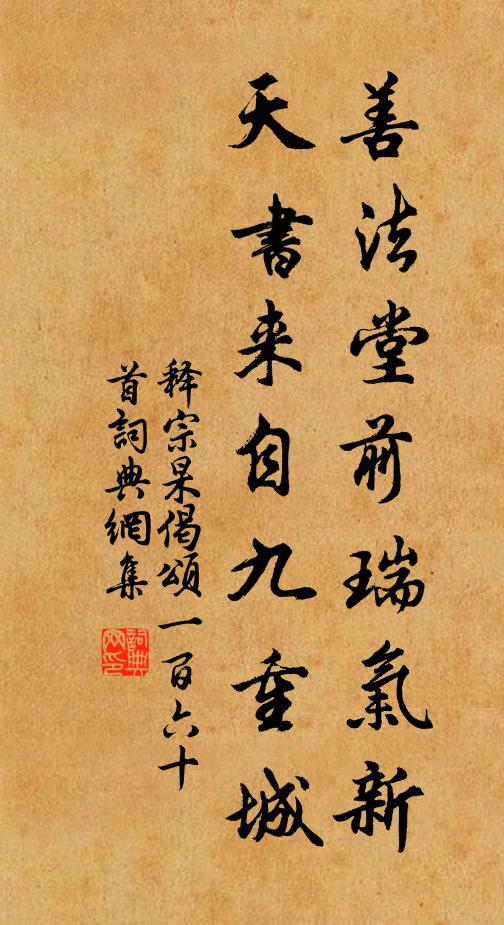 善法堂前瑞氣新
天書来自九重城
释宗杲偈頌一百六十
首詞典網集
詞典网印